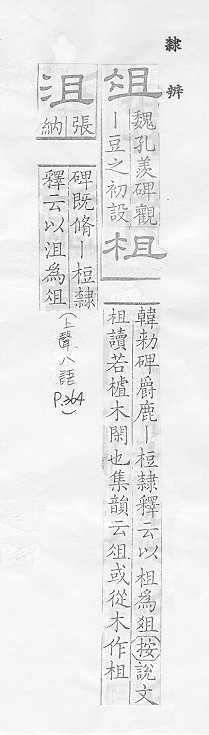 隸辨
俎
魏孔羨碑觀
丨豆之初設
柤
韓勑碑爵鹿丨梪隸釋云以柤為俎(按)說文
柤讀若樝木閑也集韻云俎或從木作柤
沮
張
納
碑既脩丨梪隸
釋云以沮為俎
(上聲八語
P.364)